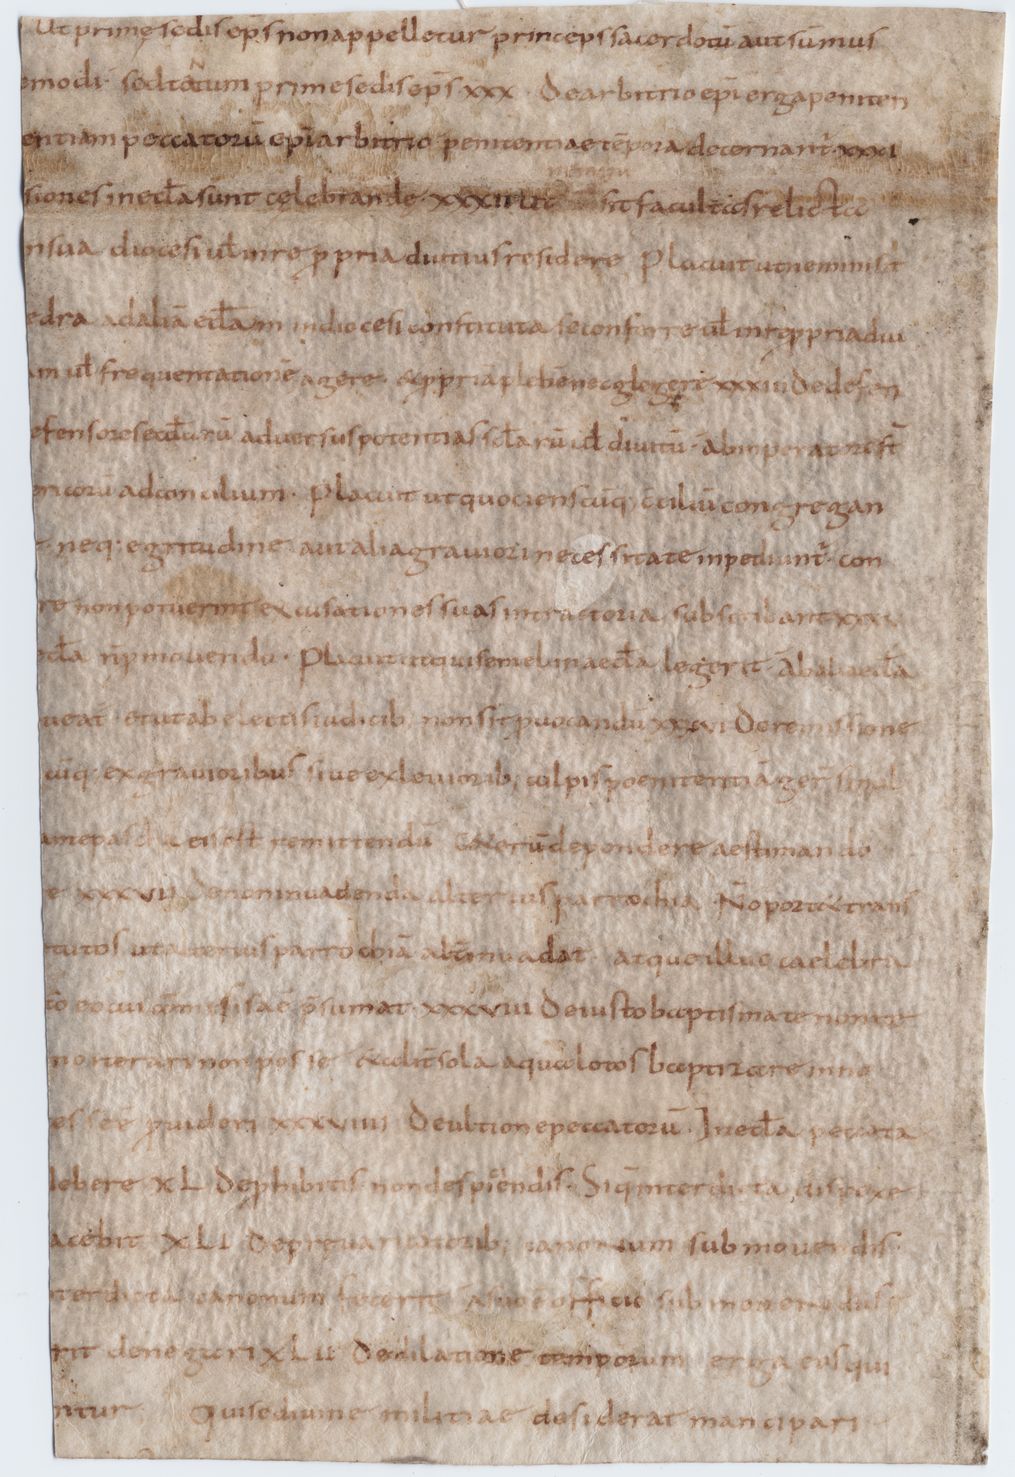 Ut prime sedis ep̄s non appelletur princeps sacerdotū aut sūmus
emodi · sed tātum prime sedis ep̄s xxx · De arbitrio ep̄i erga peniten
entiam peccatorū ep̄i arbitrio penitentiae tēpora decernant᷑ xxxi
siones in eccła sunt celebrande · xxxii Ut sit facultas relicta
in sua diocesi uł in re ꝓpria diutius residere Placuit ut nemini sit
edra ad aliā eccłam in diocesi constituta se conferre uł in re ꝓpria diu
am uł frequentationē agere · & ꝓpriā plebē neglegere xxxiii De defen
efensores eccłarū aduersus potentias scłarū uł diuitū · ab imperatore st̄
oricorū ad concilium · Placuit ut quocienscūq; cōciliū congregan
neq; egritudine aut alia grauiori necessitate inpediunt᷑ · con
re non potuerint excusationes suas in tractoria subscribant xxxv
eccła n̄ ꝓmouendo · Placuit ut qui semel in aeccła legerit · Ab alia eccła
ueat · et ut ab electis iudicib; non sit ꝓuocandū xxxvi De remissione
cūq; ex grauioribus siue ex leuiorib; culpis poenitentiā ger̄ simul
ame pascha eis est remittendū Ceterū de pondere aestimando
e xxxvii De non inuadenda alterius parrochia · Nō oport& trans
tutos ut alterius parrochiā alt̄ inuadat · atque illuc caelebra
p̄sumat · xxxviii De iusto baptismate non
no iterari non posse · sola aqua lotos baptizare in no
es see ꝓuideri xxxviiii De ubtione peccatorū · In eccła peccata
lebere XL De ꝓhibitis non despiciendis · Siq̄ interdicta
acebit XLI De preuaricatorib; canonum submouendis ·
terdicta canonum fecerit · a suo officio submouendus
rit denegari XLII De dilatione temporum erga eos qui
ntur Qui se diuine militiae desiderat mancipari